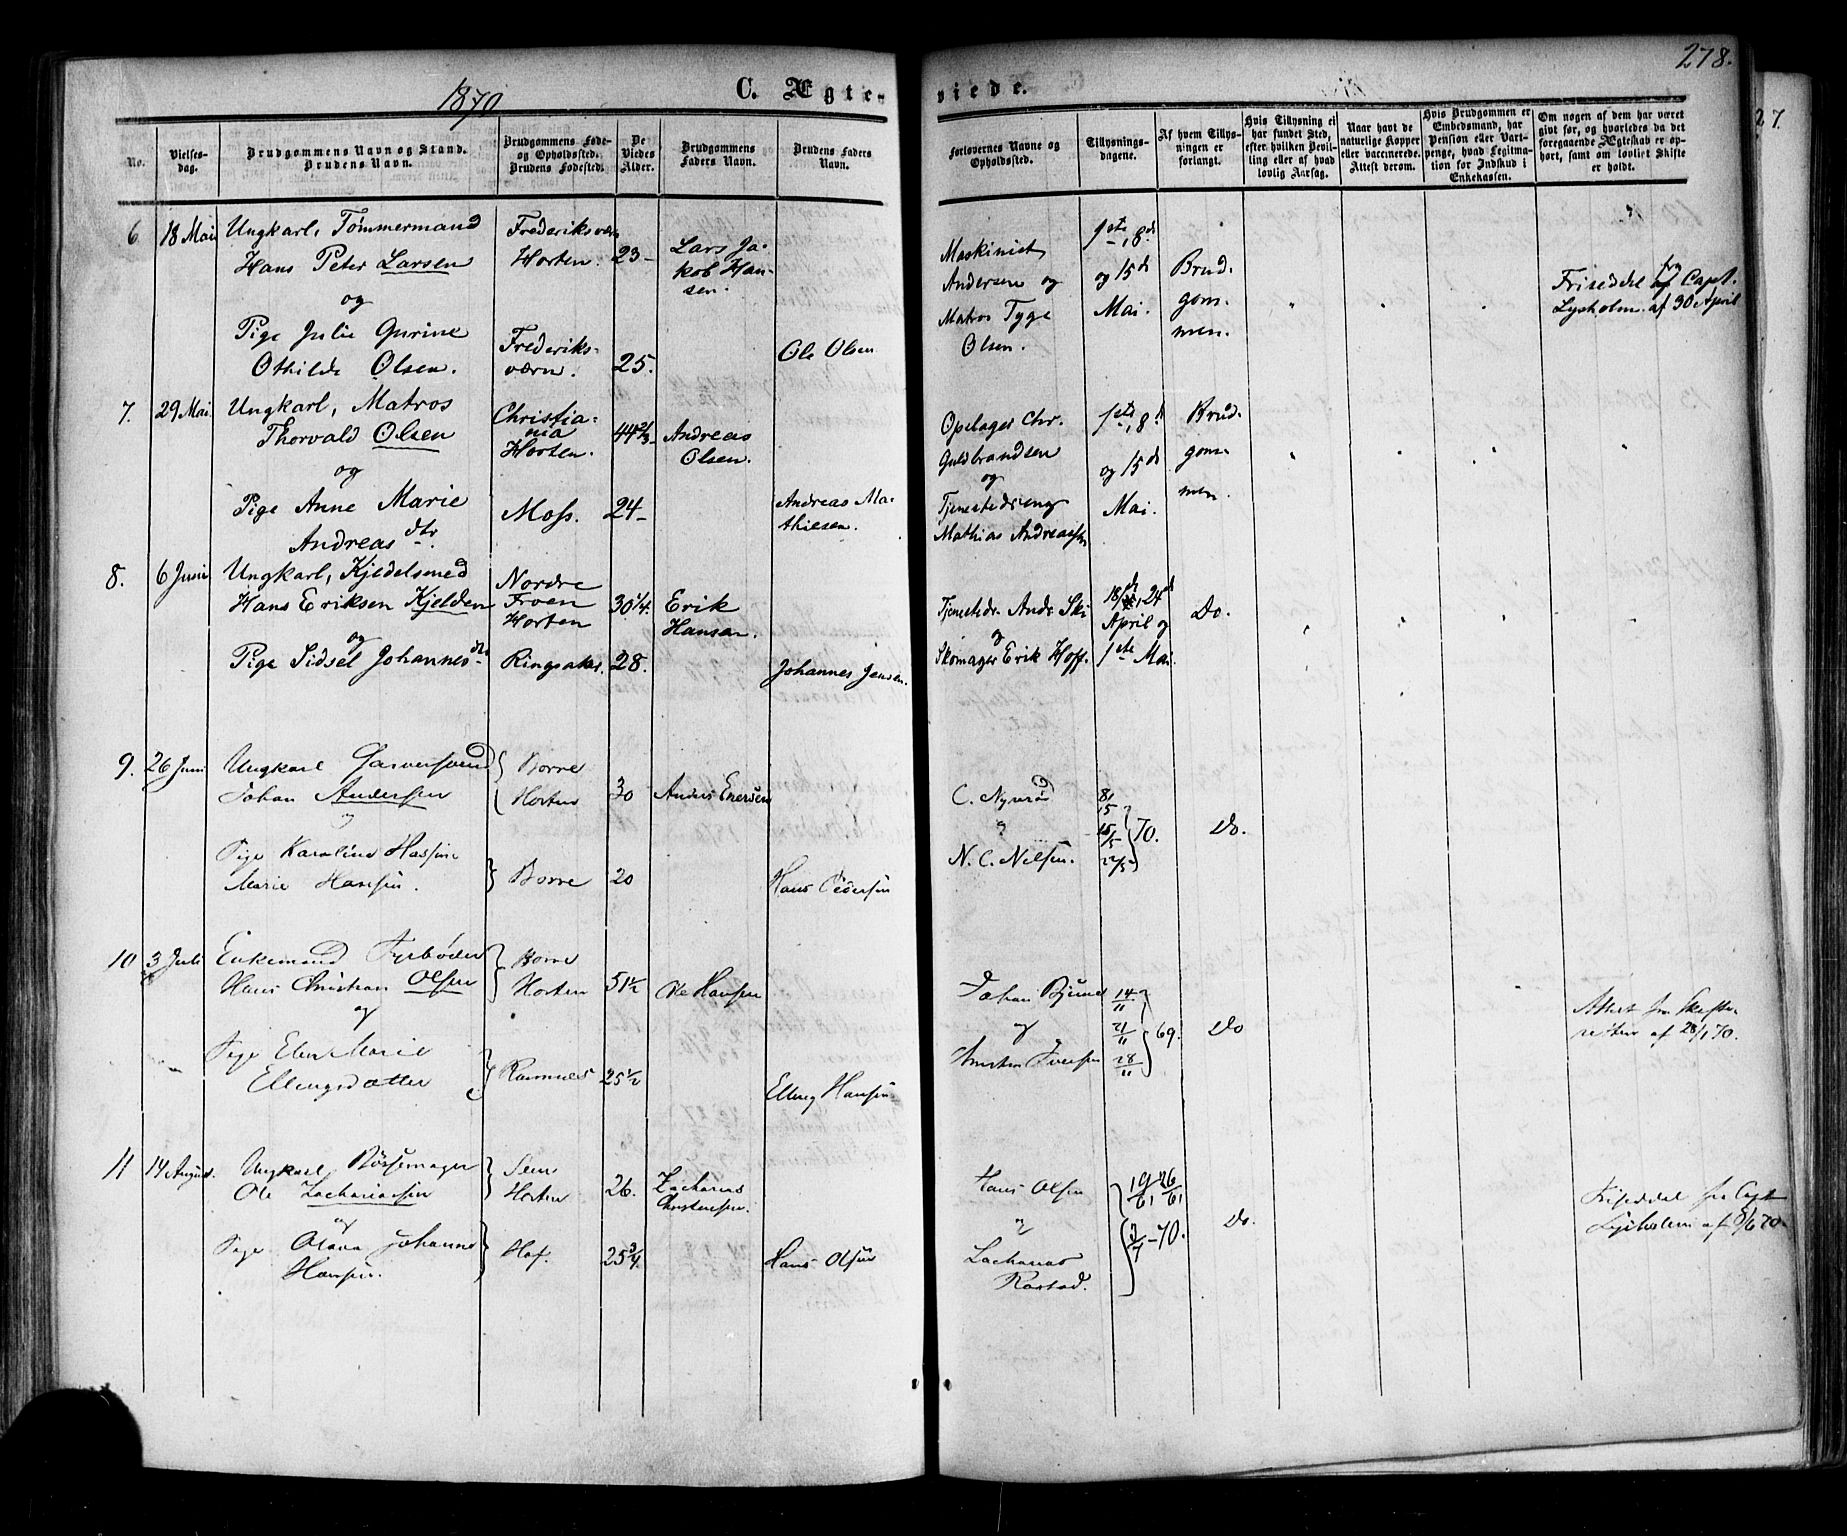 278.
27.
1870
C. Ægte-
viede.
No.
Vielses-
dag.
Brudgommens Navn og Stand.
Brudens Navn.
Brudgommens Føde-
og Opholdssted.
Brudens Fødested.
De
Viedes
Alder.
Brudgommens
Faders Navn.
Brudens Faders
Navn.
Forlovernes Navne og
Opholdssted.
Tillysnings-
dagene.
Af hvem Tillys-
ningen er
forlangt.
Hvis Tillysning ei
har fundet Sted,
efter hvilken Bevil-
ling eller af hvad
lovlig Aarsag.
Naar havt de
naturlige Kopper
eller vaccinerede.
Attest derom.
Hvis Brudgommen er
Embedsmand, har
Pension eller Vart-
penge, hvad Legitima-
tion for Indskud i
Enkekassen.
Om nogen af dem har været
givt før, og hvorledes da det
foregaaende Ægteskab er op-
hørt, samt om lovligt Skifte
er holdt.
6
18 Mai
Ungkarl, Tømmermand
Hans Peter Larsen
og
Pige Julie Gurine
Othilde Olsen.
Frederiksværn
Horten.
Frederiks-
værn.
23-
25.
Lars Ja-
kob Han-
sen.
Ole Olsen
Maskinist
Andersen og
Matros Tyge
Olsen.
1ste, 8de
og 15d
Mai.
Brud-
gom-
men.
Friseddel fra Capt.
Lysholm af 30 April
7.
29 Mai
Ungkarl, Matros
Thorvald Olsen
og
Pige Anne Marie
Andreasdtr.
Christia-
nia
Horten.
Moss.
24-
Andreas
Olsen.
Andreas Ma-
thiesen.
Opslager Chr.
Guldbrandsen
og
Tjenestedreng
Mathias Andreassen
1ste, 8d
og 15de
Mai.
Brud-
gom-
men.
8.
6 Juni
Ungkarl, Kjedelsmed
Hans Eriksen Kjelden
og
Pige Sidsel Johannesdtr
Nordre
Froen
Horten
Ringsaker.
30 1/4.
28.
Erik
Hansen.
Johannes Jensen.
Tjenestedr. Andr. Ski
og
Skomager Erik Hoff.
18de, 24de
April og
1ste Mai.
Do.
9.
26 Juni
Ungkarl Garversvend
Johan Andersen
og
Pige Karoline
Marie Hansen.
Borre
Horten
Borre
30
20
Anders Enersen
Hans Pedersen
C. Nyrerød
og
N. C. Nilsen.
8/5
15/5
22/5
70.
Do.
10
3 Juli
Enkemand Fyrbøder
Hans Christian Olsen
og
Pige Elen Marie
Ellingsdatter
Borre
Horten
Ramnes
51 1/2
25 1/2
Ole Hansen
Elling Hansen
Johan Bjune
og
Christen Iversen
14/11
21/11
28/11
69.
Do
Attest fra Skifte-
retten af 28/1 70.
11
14 August
Ungkarl Bøssemager
Ole Zachariasen
og
Pige Olava Johanne
Hansen.
Sem
Horten
Hof.
26.
25 3/4.
Zacharias
Christensen.
Hans Olsen
Hans Olsen
og
Zacharias
Rastad.
19/6, 26/6,
3/7 - 70.
Do.
Friseddel fra Capt
Lysholm af 8/6 70.